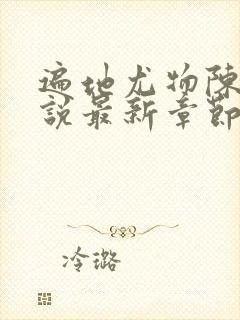 遍地尤物陈
說最新章節
冷璐